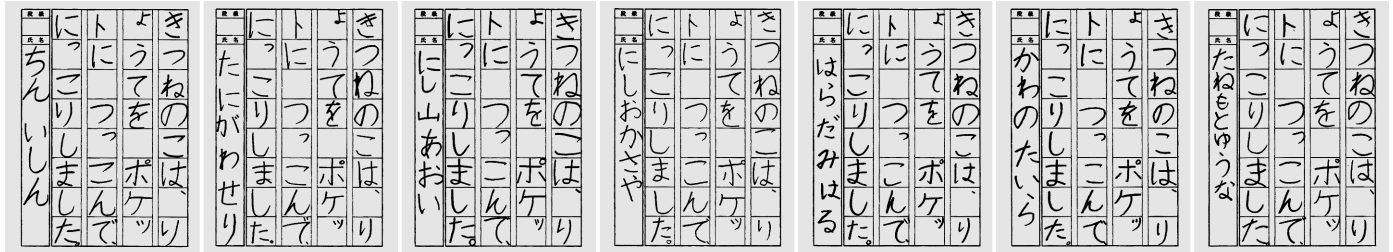 きつねのこは、り
ょうてを ポケッ
トに つっこんで、
にっこりしました。
段級
氏名 ちん いしん
きつねのこは、り
ょうてを ポケッ
トに つっこんで、
にっこりしました。
段級
氏名 たにがわせり
きつねのこは、り
ょうてを ポケッ
トに つっこんで、
にっこりしました。
段級
氏名 にし山あおい
きつねのこは、り
ょうてを ポケッ
トに つっこんで、
にっこりしました。
段級
氏名 にしおかさや
きつねのこは、り
ょうてを ポケッ
トに つっこんで、
にっこりしました。
段級
氏名 はらだみはる
きつねのこは、り
ょうてを ポケッ
トに つっこんで、
にっこりしました。
段級
氏名 かわのたいら
きつねのこは、り
ょうてを ポケッ
トに つっこんで、
にっこりしました。
段級
氏名 たねもとゆうな